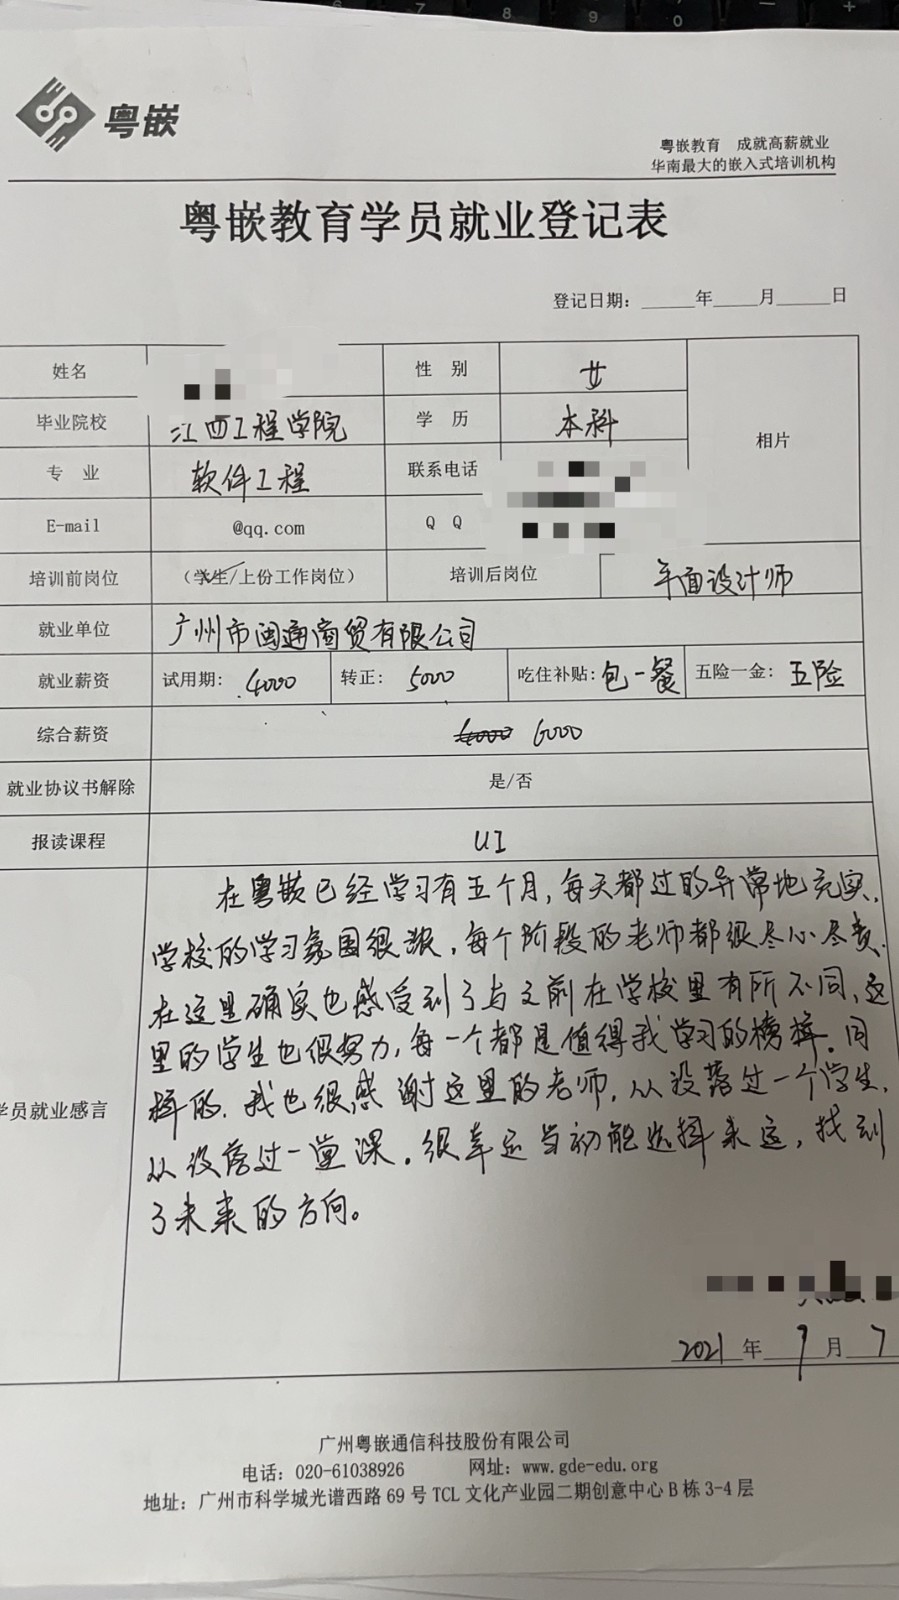 7 8 9 - +
0
粤嵌
粤嵌教育 成就高薪就业
华南最大的嵌入式培训机构
粤嵌教育学员就业登记表
登记日期：_____年____月_____日
姓名 性 别 女 相片
毕业院校 江西工程学院 学 历 本科
专 业 软件工程 联系电话
E-mail @qq.com Q Q
培训前岗位 （学生/上份工作岗位） 培训后岗位 平面设计师
就业单位 广州市闽通商贸有限公司
就业薪资 试用期：4000 转正：5000 吃住补贴：包一餐 五险一金：五险
综合薪资 6000
就业协议书解除 是/否
报读课程 UI
在粤嵌已经学习有五个月，每天都过的异常地充实，
学校的学习氛围很浓，每个阶段的老师都很尽心尽责.
在这里确实也感受到了与之前在学校里有所不同，这
里的学生也很努力，每一个都是值得我学习的榜样。同
学员就业感言 样的，我也很感谢这里的老师，从没落过一个学生，
从没落过一堂课。很幸运当初能选择来这，找到
了未来的方向。
2021年 9月 7
广州粤嵌通信科技股份有限公司
电话：020-61038926 网址：www.gde-edu.org
地址：广州市科学城光谱西路 69 号 TCL 文化产业园二期创意中心 B 栋 3-4 层